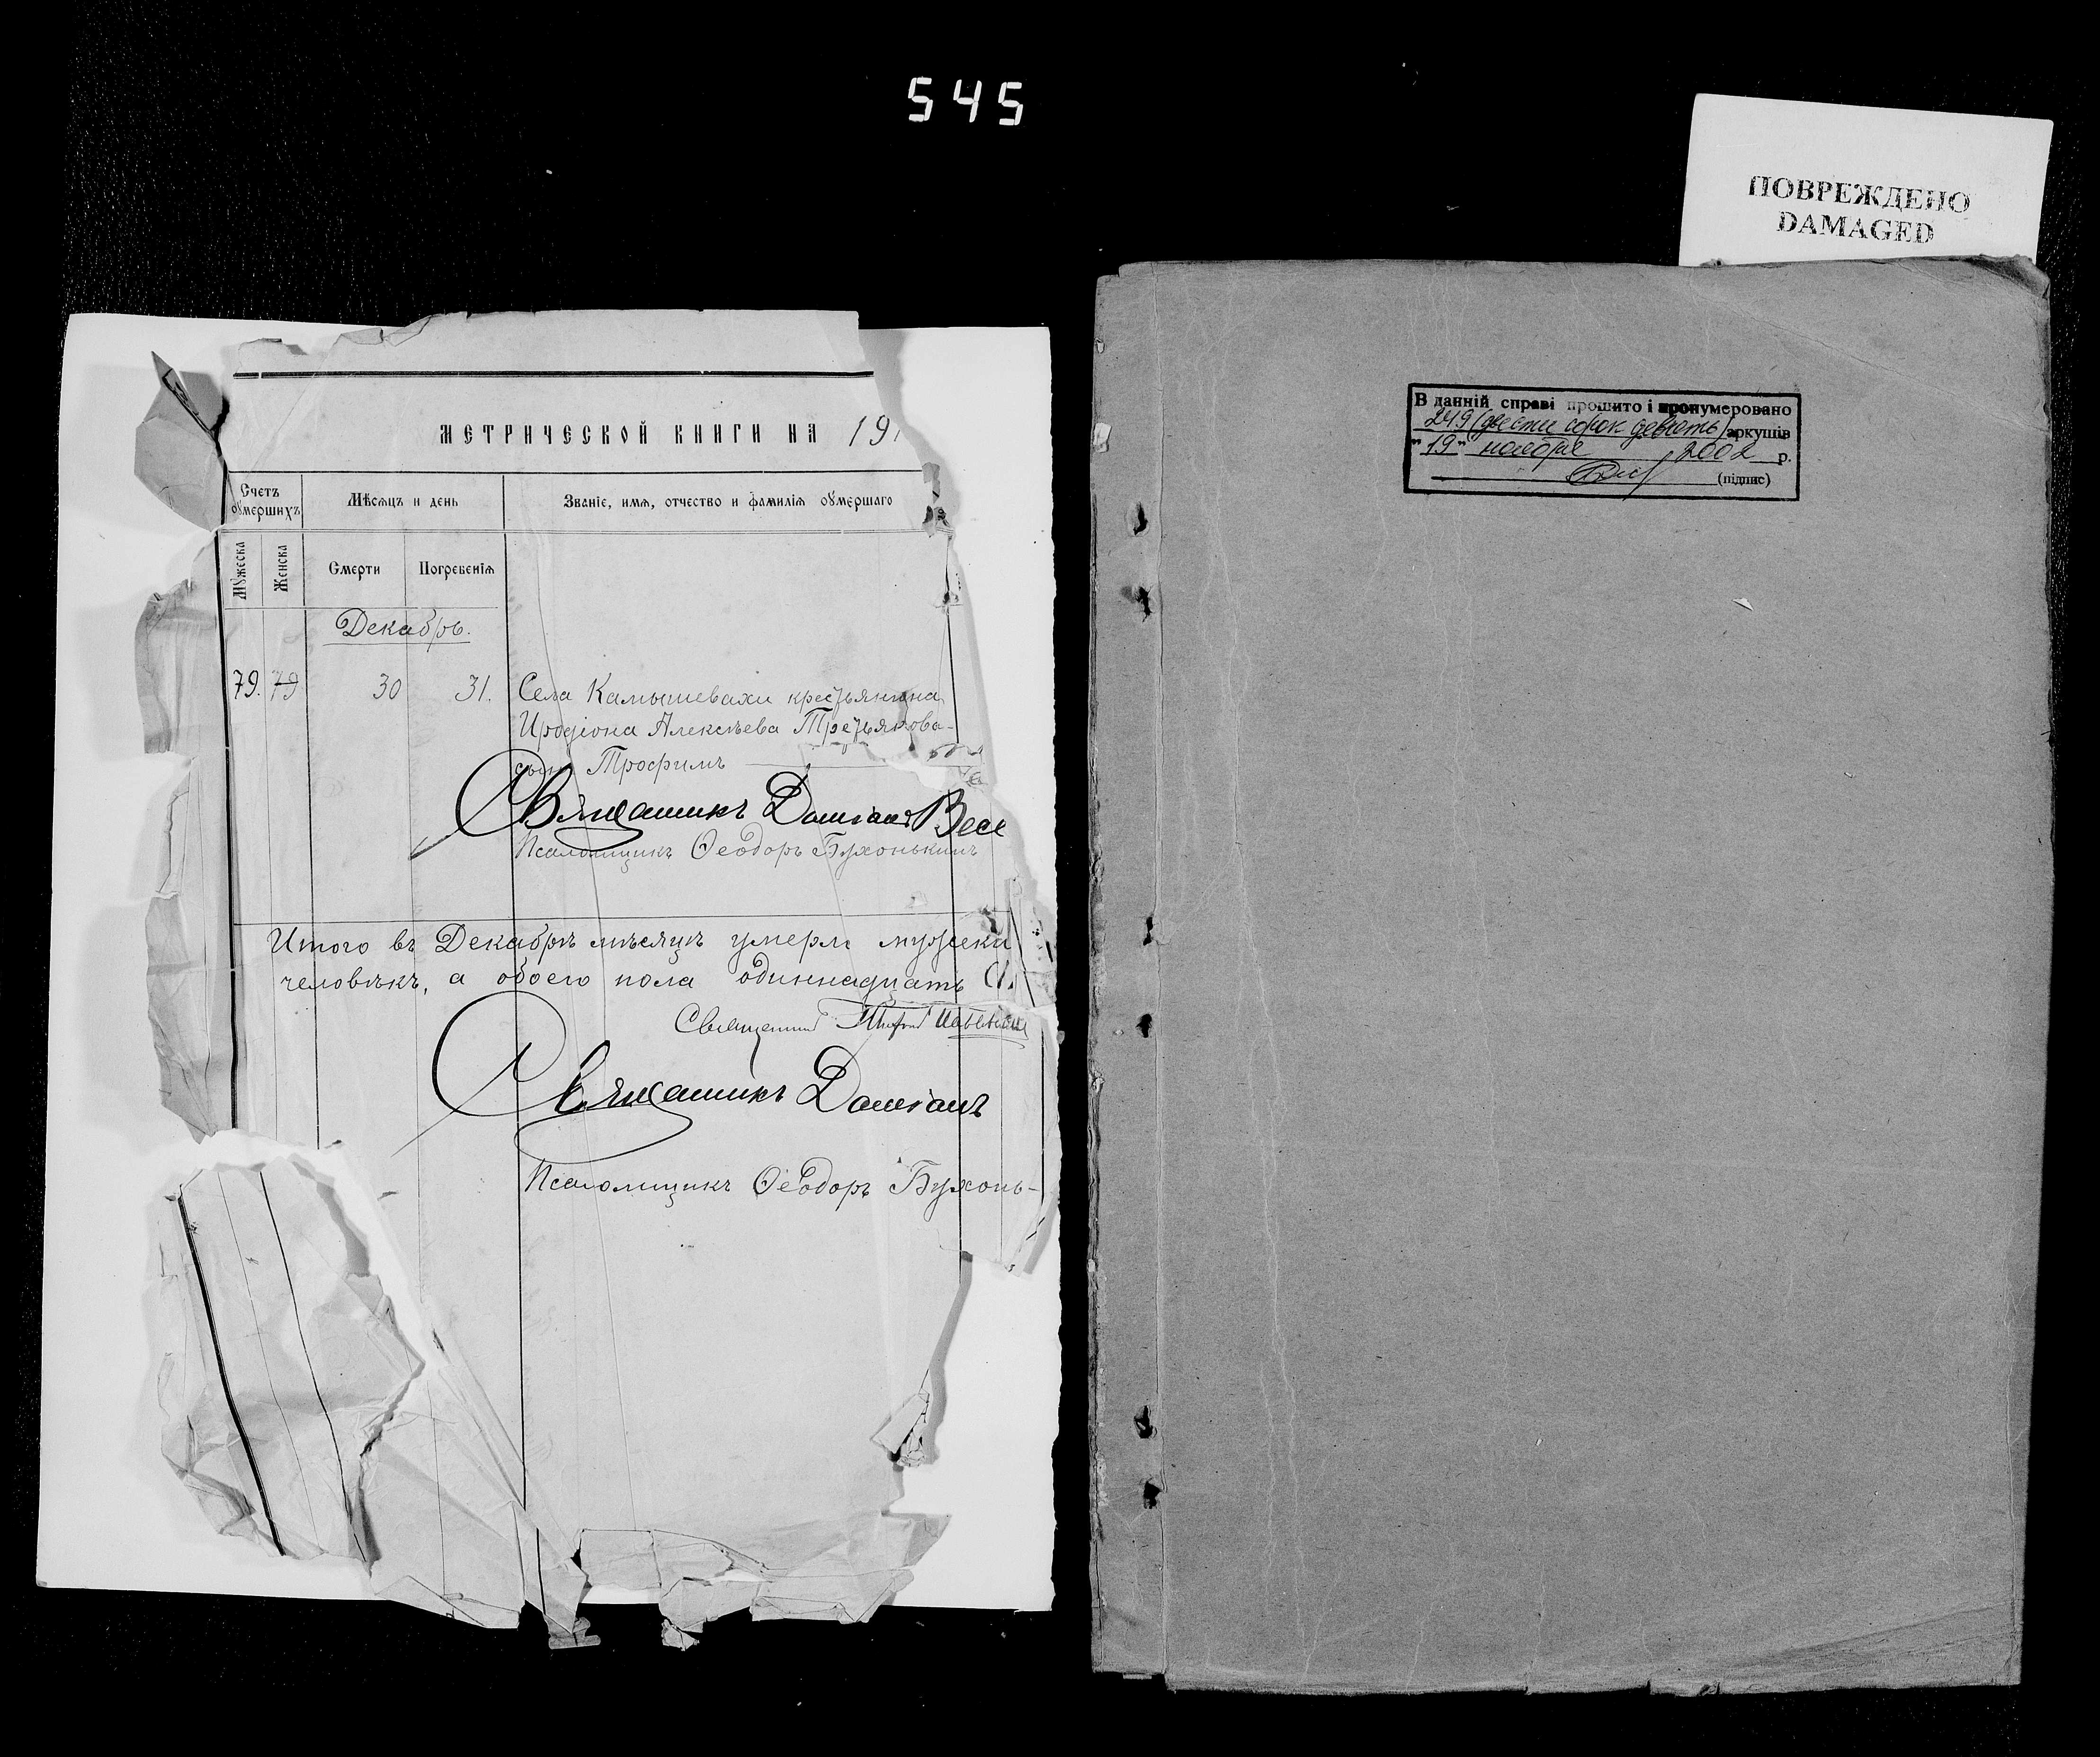 545
ПОВРЕЖДЕНО
DAMAGED
МЕТРИЧЕСКОЙ КНИГИ НА 191
Счетъ умершихъ
Мѣсяцъ и день
Званіе, имя, отчество и фамилія умершаго
Мужеска
Женска
Смерти
Погребенія
Декабрь.
79. 79 30 31. Села Камышевахи крестьянина
Иродіона Алексѣева Третьякова
сынъ Трофимъ
Священникъ Даміанъ Весе
Псаломщикъ Ѳеодоръ Бухонькинъ
Итого въ Декабрѣ мѣсяцѣ умерли мужеска
человѣкъ, а обоего пола одиннадцать (1
Священникъ
Священникъ Даміанъ
Псаломщикъ Ѳеодоръ Бухонь-
В данній справі прошито і пронумеровано
249 (двести сорок девять) аркушів
"19" ноября 2002 р.
(підпис)